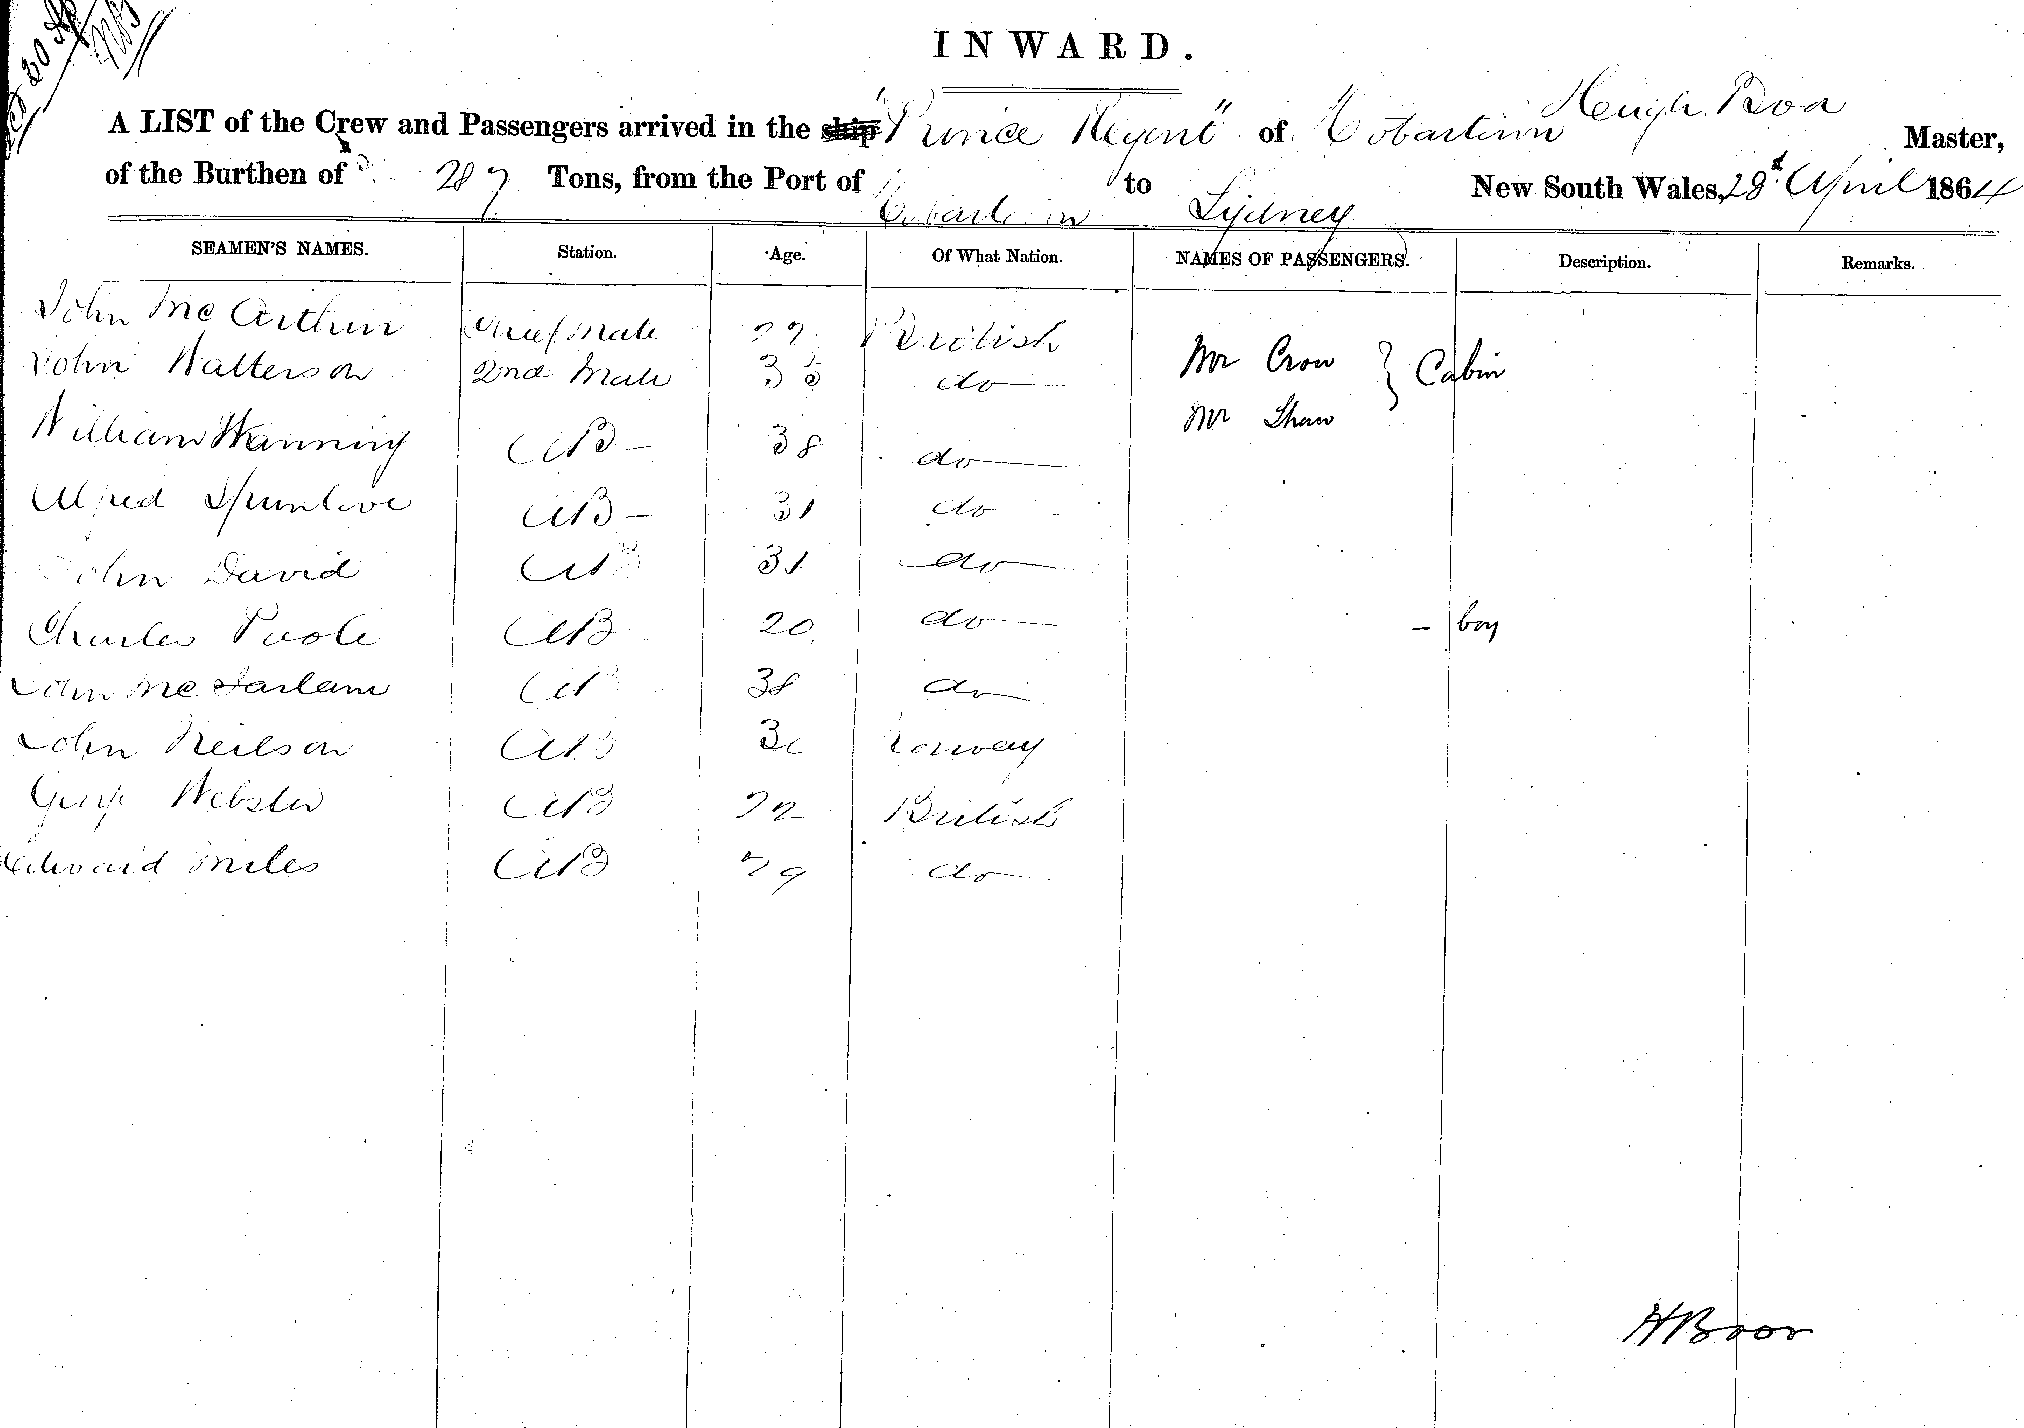 INWARD.
Hugh Boa
A LIST of the Crew and Passengers arrived in the ship "Prince Regent" of Hobartown Master,
of the Burthen of 287 Tons, from the Port of Hobartown to Sydney New South Wales, 28th April 1864
SEAMEN'S NAMES. Station. Age. Of What Nation. NAMES OF PASSENGERS. Description. Remarks.
John McArthur Chief Mate British
John Watterson 2nd Mate 35 do
Mr Crow } Cabin
Mr Shaw
William Wanning AB 38 do
Alfred Spurlove AB 31 do
John David AB 31 do
Charles Poole AB 20 do - boy
John McFarlane AB 38 do
John Neilson AB Norway
George Webster AB 22 British
Edward Miles AB 29 do
H Boor